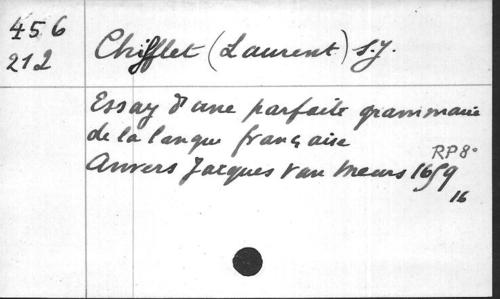 456
212
Chifflet (Laurent) S.J.
Essay d'une parfaite grammaire
de la langue française
Anvers Jacques van Meurs 1659
RP 8°
16